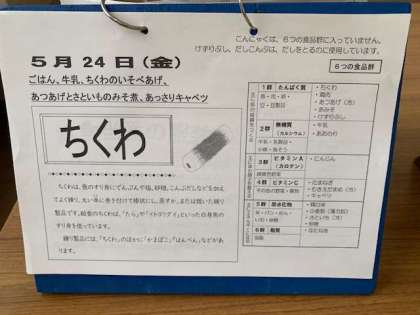 こんにゃくは、6つの食品群に入っていません。
けずりぶし、だしこんぶは、だしをとるのに使用しています。
5月24日(金)
6つの食品群
ごはん、牛乳、ちくわのいそべあげ、
あつあげとさといものみそ煮、あっさりキャベツ
ちくわ
ちくわは、魚のすり身にでんぷんや塩、砂糖、こんぶだしなどを加え
てよく練り、太い串に巻き付けて棒状にし、蒸すか、または焼いた練り
製品です。給食のちくわは、「たら」や「イトヨリダイ」といった白身魚の
すり身を使っています。
練り製品には、「ちくわ」のほかに「かまぼこ」「はんぺん」などがあ
ります。
1群 たんぱく質
魚・肉・卵・
豆・豆製品
・ちくわ
・鶏肉
・あつあげ(冷)
・赤みそ
・けずりぶし
2群 無機質
(カルシウム)
牛乳・乳製品・
小魚・海そう
・牛乳
・あおのり
3群 ビタミンA
(カロテン)
緑黄色野菜
・にんじん
4群 ビタミンC
その他の野菜・果物
・たまねぎ
・むきえだまめ(冷)
・キャベツ
5群 炭水化物
米・パン・めん・
いも・砂糖
・精白米
・小麦粉(薄力粉)
・さといも(冷)
・砂糖
6群 脂質
油脂
・なたね油